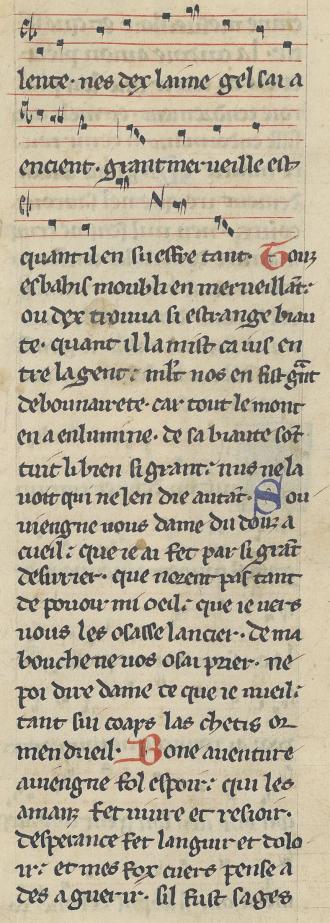 lente· nes dex laime gel sai a
encient· grant merueille est
quant il en sueffre tant· Touz
esbahis moubli en merueillāt·
ou dex trouua si estrange biau
te· quant il la mist ca ius en
tre la gent· ml't nos en fist gñt
debounairete· car tout le mont
en a enlumine· de sa biaute sōt
tuit li bien si grant· nus ne la
uoit qui ne len die autāt· Sou
uiengne uous dame du douz a
cueil· que ie ai fet par si grāt
desirrier· que norent pas tant
de pouoir mi oeil· que ie uers
uous les osasse lancier· de ma
bouche ne uos osai prier· ne
poi dire dame ce que ie uueil·
tant sui coars las chetis or
men dueil· Bone auenture
auiengne fol espoir· qui les
amanz fet uiure et resioir·
desperance fet languir et dolo
ir· et mes fox cuers pense a
des a guerir· sil fust sages